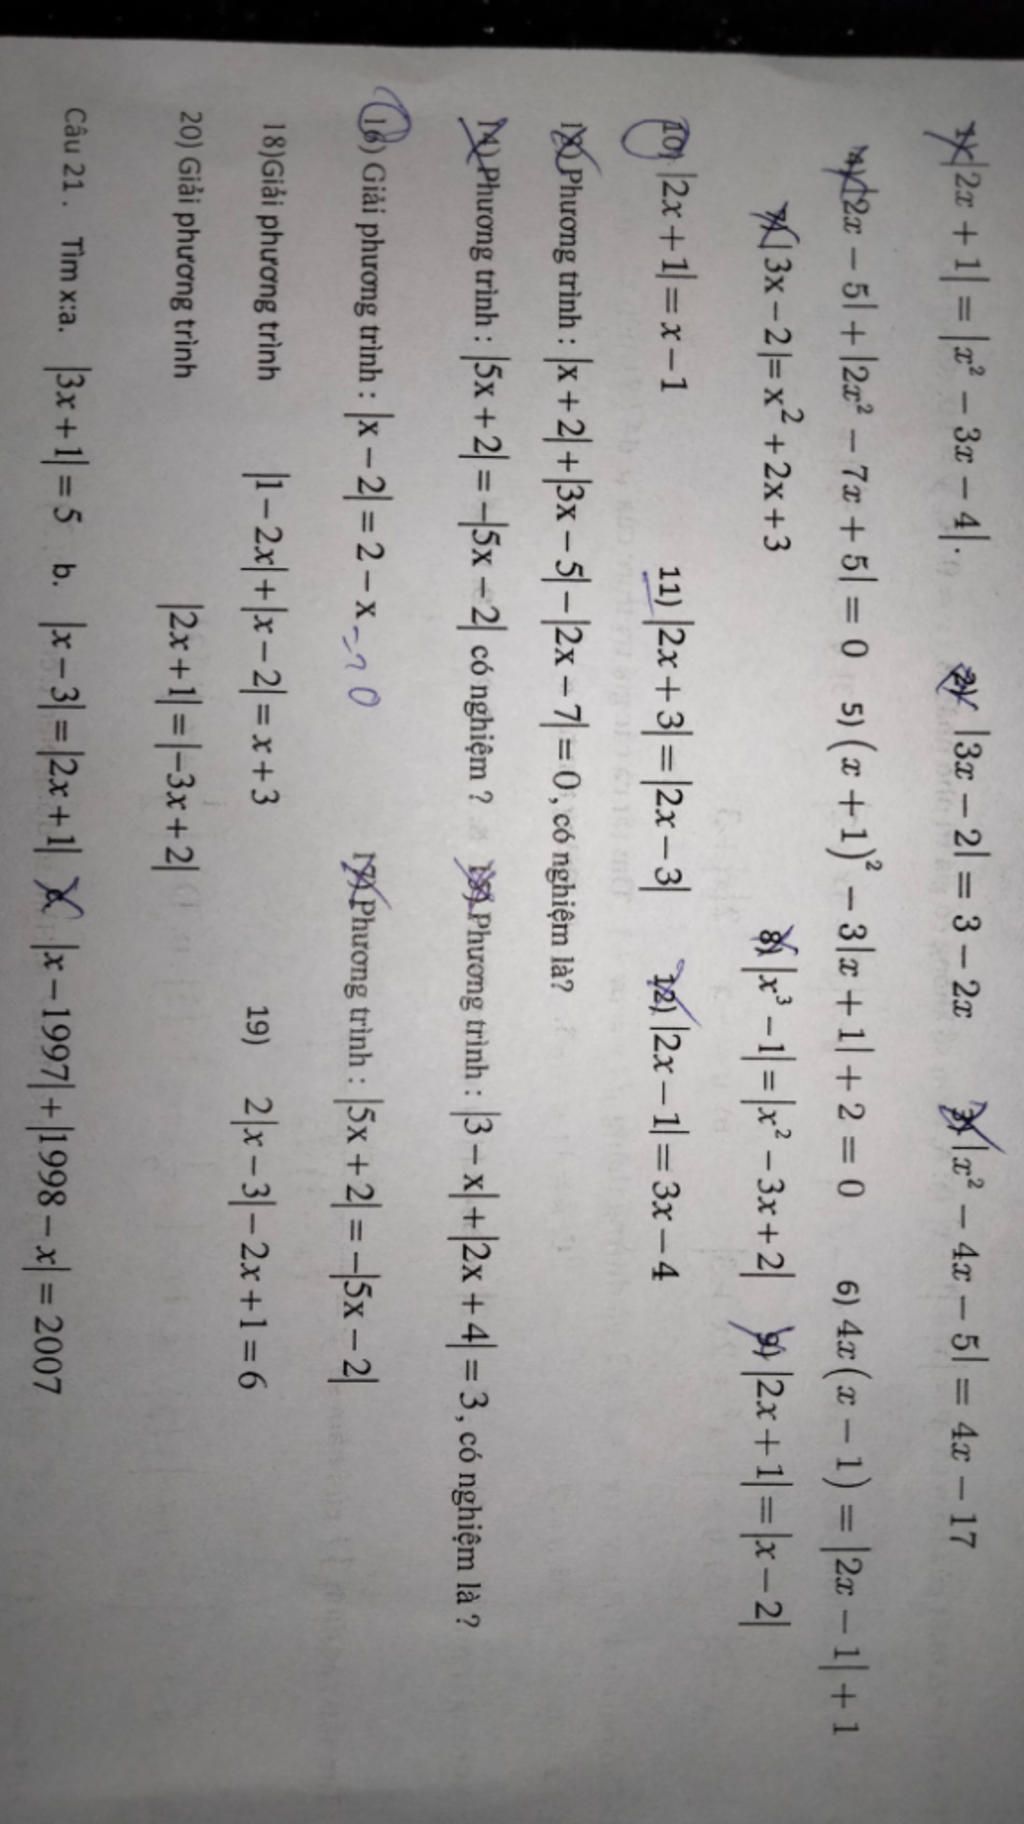 1) |2x + 1| = |x² − 3x − 4|. 2) |3x − 2| = 3 − 2x 3) |x² − 4x − 5| = 4x − 17
4) |2x − 5| + |2x² − 7x + 5| = 0 5) (x + 1)² − 3|x + 1| + 2 = 0 6) 4x(x − 1) = |2x − 1| + 1
7) |3x − 2| = x² + 2x + 3 8) |x³ − 1| = |x² − 3x + 2| 9) |2x + 1| = |x − 2|
10) |2x + 1| = x − 1 11) |2x + 3| = |2x − 3| 12) |2x − 1| = 3x − 4
13) Phương trình : |x + 2| + |3x − 5| − |2x − 7| = 0, có nghiệm là?
14) Phương trình : |5x + 2| = −|5x − 2| có nghiệm ? 15) Phương trình : |3 − x| + |2x + 4| = 3, có nghiệm là ?
16) Giải phương trình : |x − 2| = 2 − x 17) Phương trình : |5x + 2| = −|5x − 2|
18)Giải phương trình |1 − 2x| + |x − 2| = x + 3 19) 2|x − 3| − 2x + 1 = 6
20) Giải phương trình |2x + 1| = |−3x + 2|
Câu 21 . Tìm x:a. |3x + 1| = 5 b. |x − 3| = |2x + 1| |x − 1997| + |1998 − x| = 2007